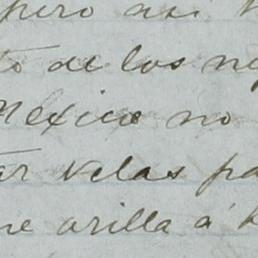 pero así
to de los ne
México no
ar velas pa
ne orilla á